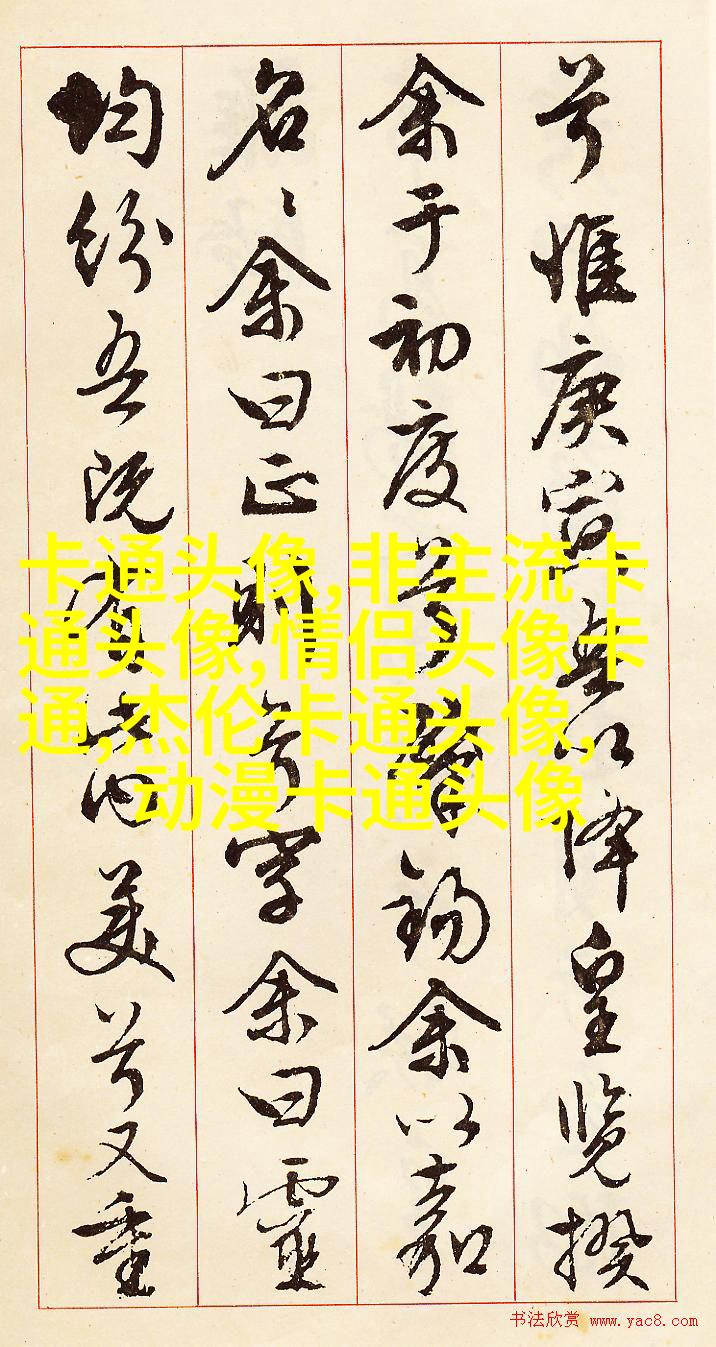 兮惟庚寅吾以降皇覽揆
余于初度兮肇錫余以嘉
名〻余曰正則兮字余曰靈
均紛吾既有此内美兮又重
卡通头像,非主流卡
通头像,情侣头像卡
通,杰伦卡通头像,
动漫卡通头像
书法欣赏 www.yac8.com